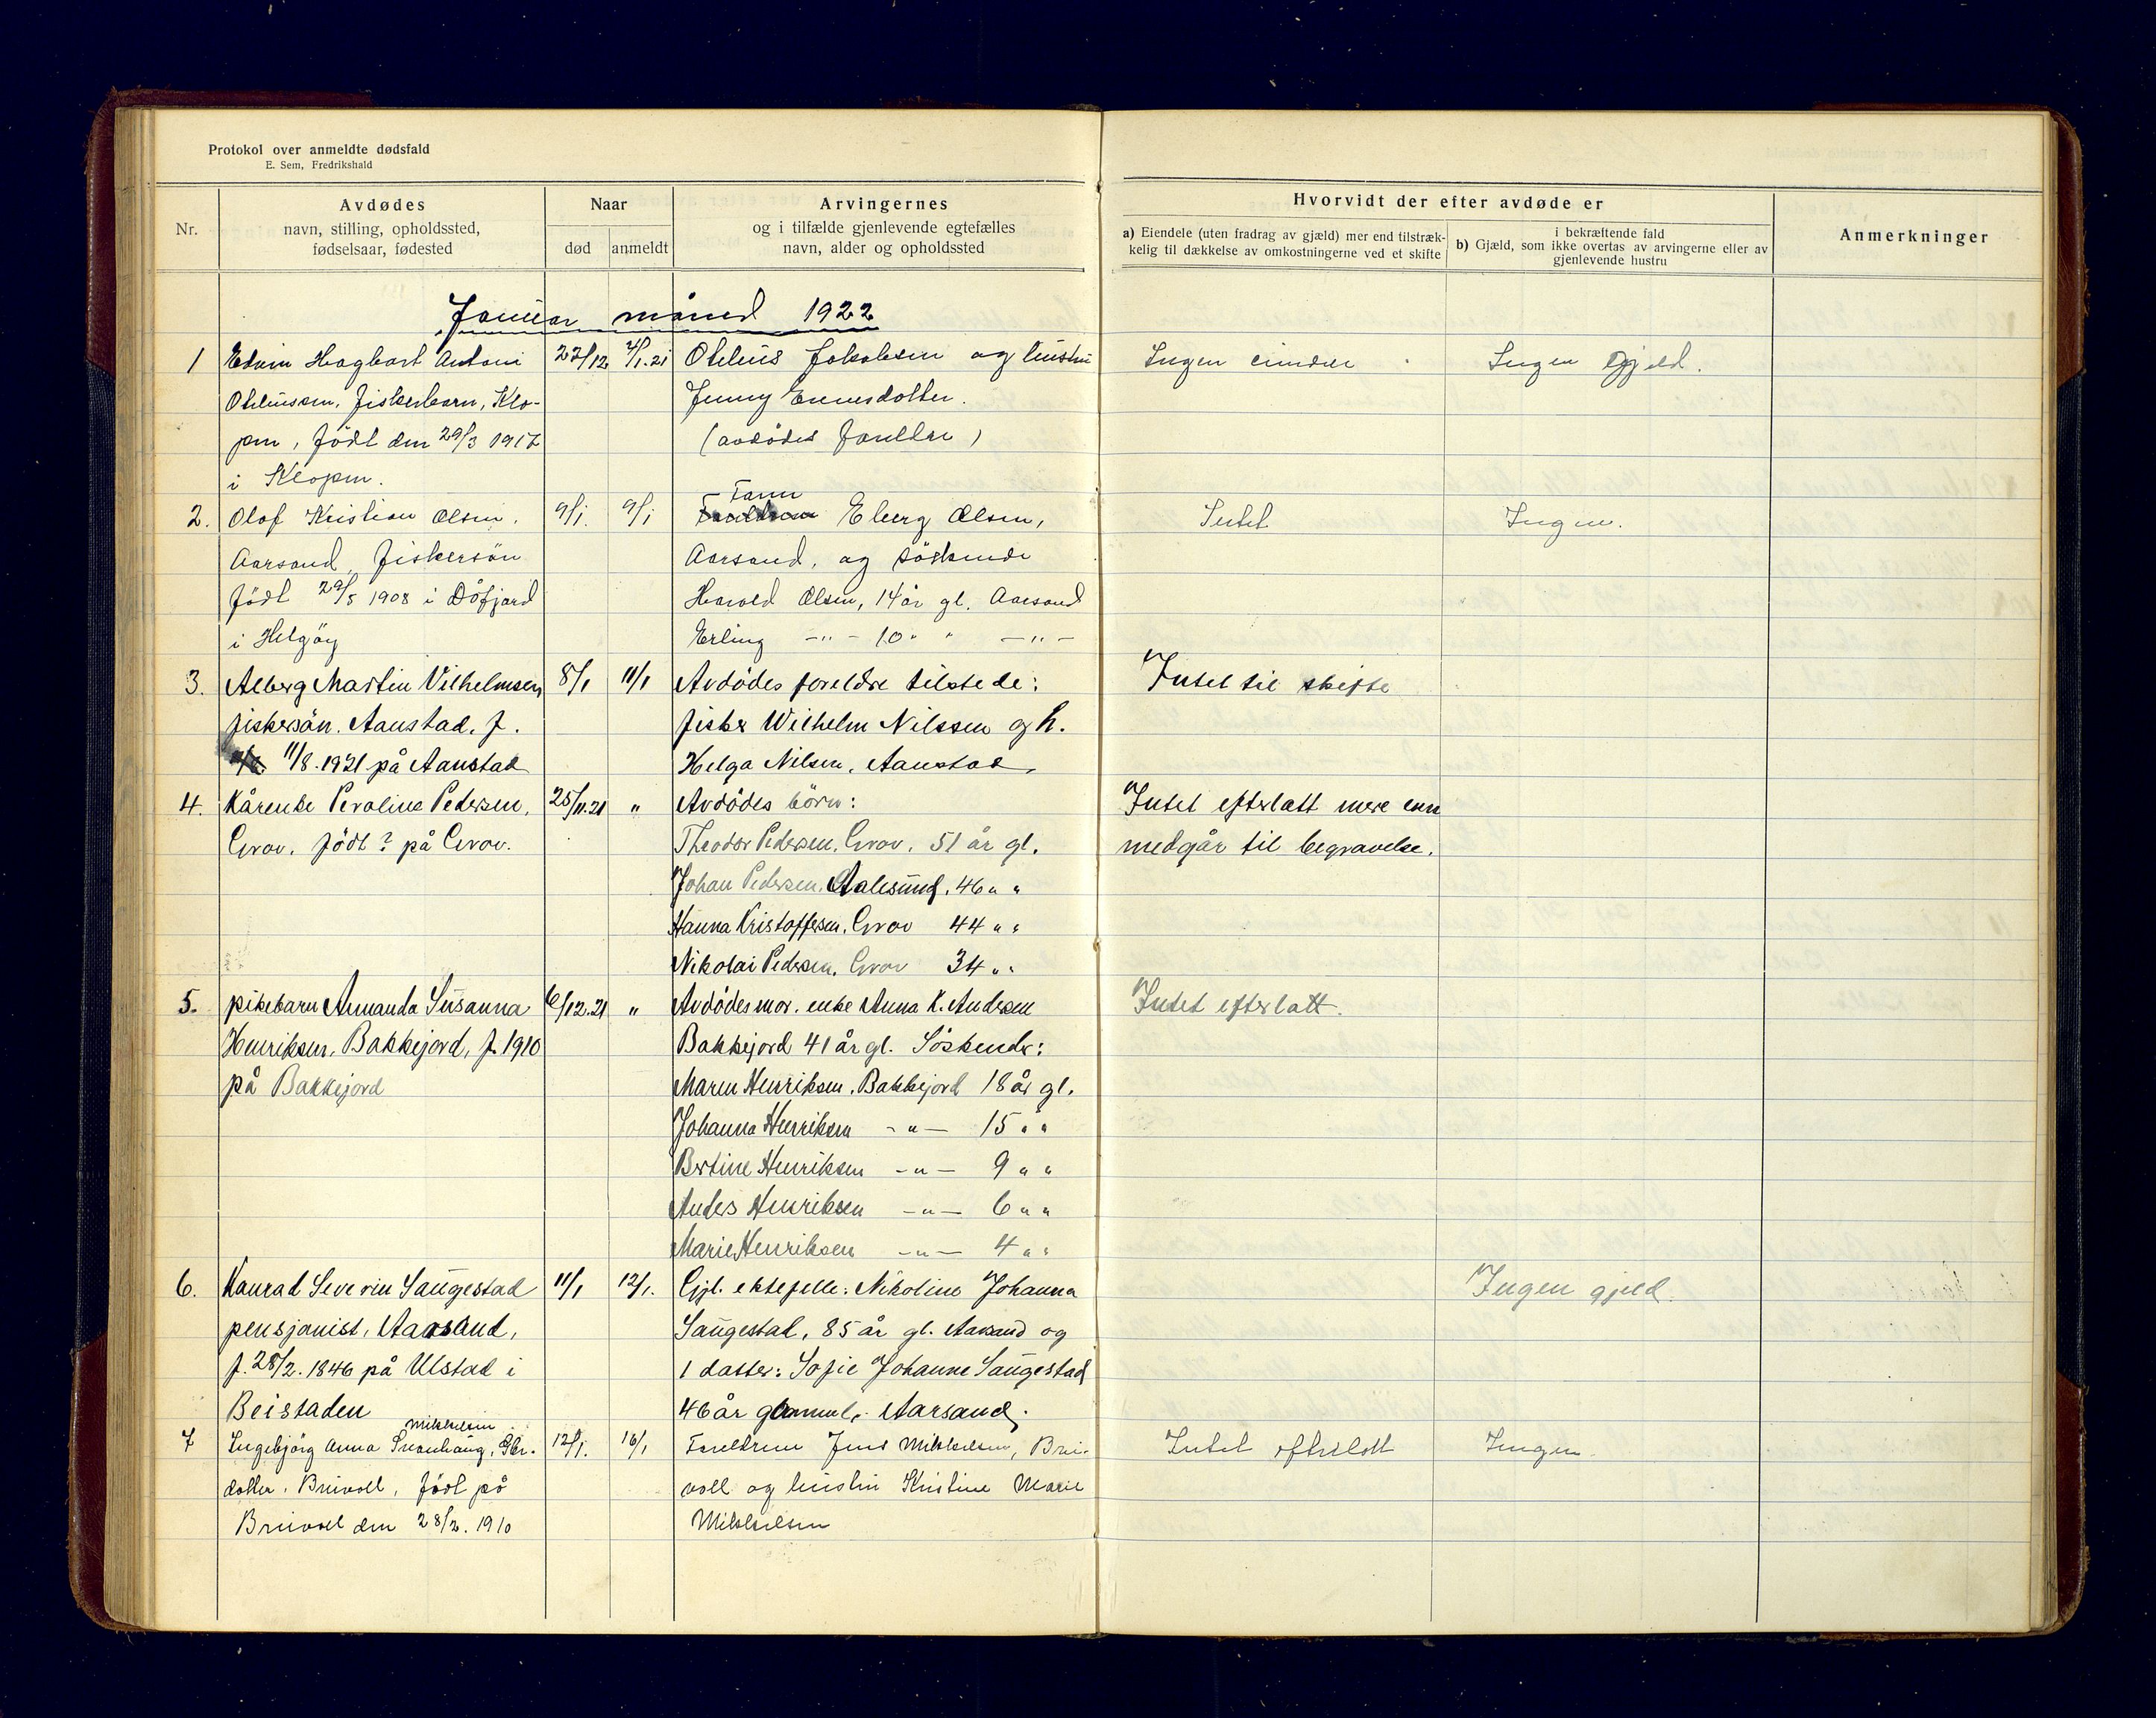 Protokol over anmeldte dødsfald
E. Sem, Fredrikshald
Nr.
Avdødes
navn, stilling, opholdssted,
fødselsaar, fødested
Naar
død
anmeldt
Arvingernes
og i tilfælde gjenlevende egtefælles
navn, alder og opholdssted
Hvorvidt der efter avdøde er
a) Eiendele (uten fradrag av gjæld) mer end tilstræk-
kelig til dækkelse av omkostningerne ved et skifte
i bekræftende fald
b) Gjæld, som ikke overtas av arvingerne eller av
gjenlevende hustru
Anmerkninger
Januar måned 1922
1 Edvin Hagbart Antoni 27/12 Otelius Jakobsen og hustru Ingen Ingen gjeld.
Oteliussen, fiskerbarn, Klo- Jenny
pen, født den 29/3 1917 (avdødes foreldre)
i Klopen.
2. Olaf Kristian Olsen. 9/1. 9/1 Faren Eberg Olsen, Intet Ingen.
Aarsand, fiskersön Aarsand, og söskende
født 29/5 1908 i Dåfjord Harald Olsen, 14 år gl. Aarsand
i Helgöy Erling -"- 10 " " -"-
3. Alberg Martin Vilhelmsen 8/1 11/1 Avdödes foreldre tilstede: Intet til skifte
fiskersön. Aanstad. f. fisker Wilhelm Nilssen og h.
11/8. 1921 på Aanstad Helga Nilsen, Aanstad.
4. Kårenke Peroline Pedersen, 25/11.21 " Avdödes börn: Intet efterlatt mere enn
Grov. född? på Grov. Theodor Pedersen, Grov, 51 år gl. medgår til begravelse.
Johan Pedersen, Aalesund, 46 " "
Hanna Kristoffersen, Grov 44 " "
Nikolai Pedersen, Grov 34 " "
5. pikebarn Armanda Susanna 6/12.21 " Avdödes mor. enke Anna K. Andersen Intet efterlatt.
Henriksen, Bakkejord, f. 1910 Bakkejord 41 år gl. Söskende:
på Bakkejord Maren Henriksen, Bakkejord 18 år gl.
Johanna Henriksen -"- 15 " "
Bertine Henriksen -"- 9 " "
Anders Henriksen -"- 6 " "
Marie Henriksen -"- 4 " "
6. Konrad Severin Saugestad 11/1 12/1. Gjl. ektefelle: Nikoline Johanna Ingen gjeld.
pensjonist, Aarsand, Saugestad, 85 år gl. Aarsand og
f. 28/2. 1846 på Ulstad i 1 datter: Sofie Johanne Saugestad
Beistaden 46 år gammel, Aarsand.
Mikkelsen
7 Ingebjörg Anna Svanhaug, Gbr. 12/1. 16/1 Foreldrene Jens Mikkelsen, Brei- Intet efterlatt Ingen
datter. Breivoll, født på voll og hustru Kristine Marie
Breivoll den 28/2. 1910 Mikkelsen